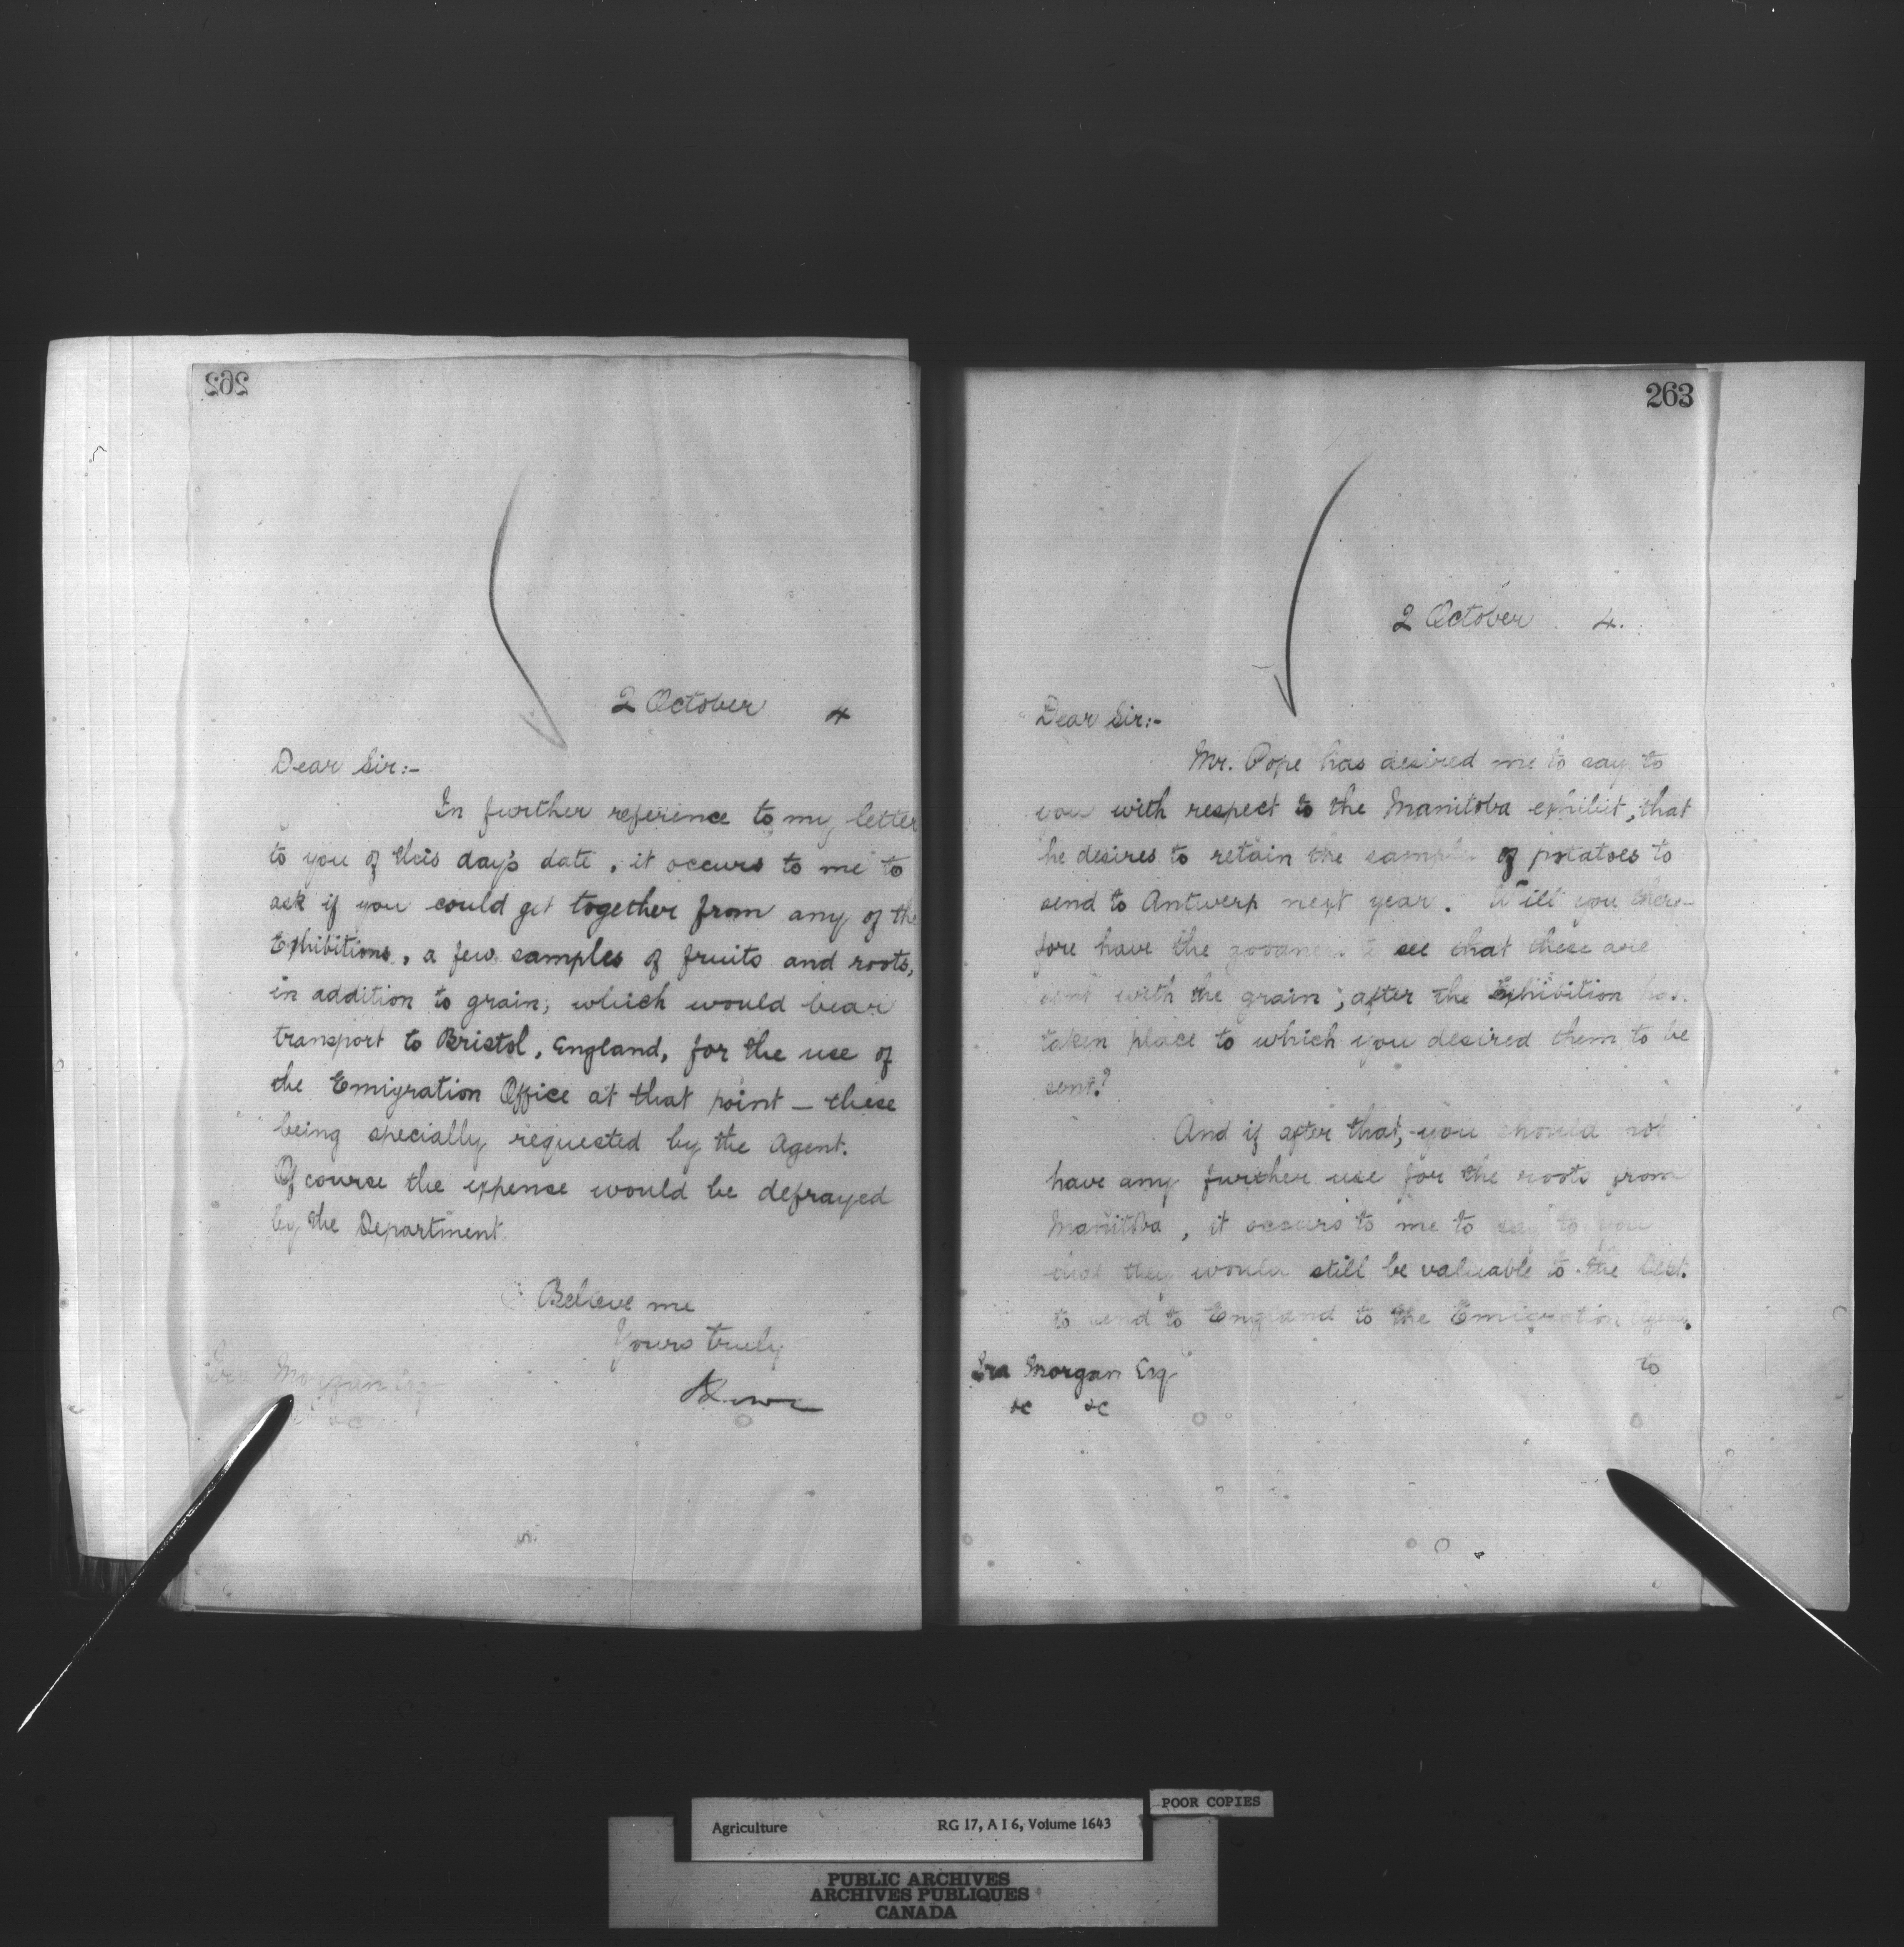 262
2 October 4
Dear Sir:-
In further reference to my letter
to you of this day's date, it occurs to me to
ask if you could get together from any of the
Exhibitions, a few samples of fruits and roots,
in addition to grain; which would bear
transport to Bristol, England, for the use of
the Emigration Office at that point — these
being specially requested by the Agent.
Of course the expense would be defrayed
by the Department.
Believe me
Yours truly
Ira Morgan Esq
&c
263
2 October 4.
Dear Sir:-
Mr. Pope has desired me to say to
you with respect to the Manitoba exhibit, that
he desires to retain the samples of potatoes to
send to Antwerp next year. Will you there-
fore have the goodness to see that these are
sent with the grain; after the Exhibition has
taken place to which you desired them to be
sent?
And if after that, you should not
have any further use for the roots from
Manitoba, it occurs to me to say to you
that they would still be valuable to the Dept.
to send to England to the Emigration
Ira Morgan Esq
to
&c &c
POOR COPIES
Agriculture RG 17, A I 6, Volume 1643
PUBLIC ARCHIVES
ARCHIVES PUBLIQUES
CANADA